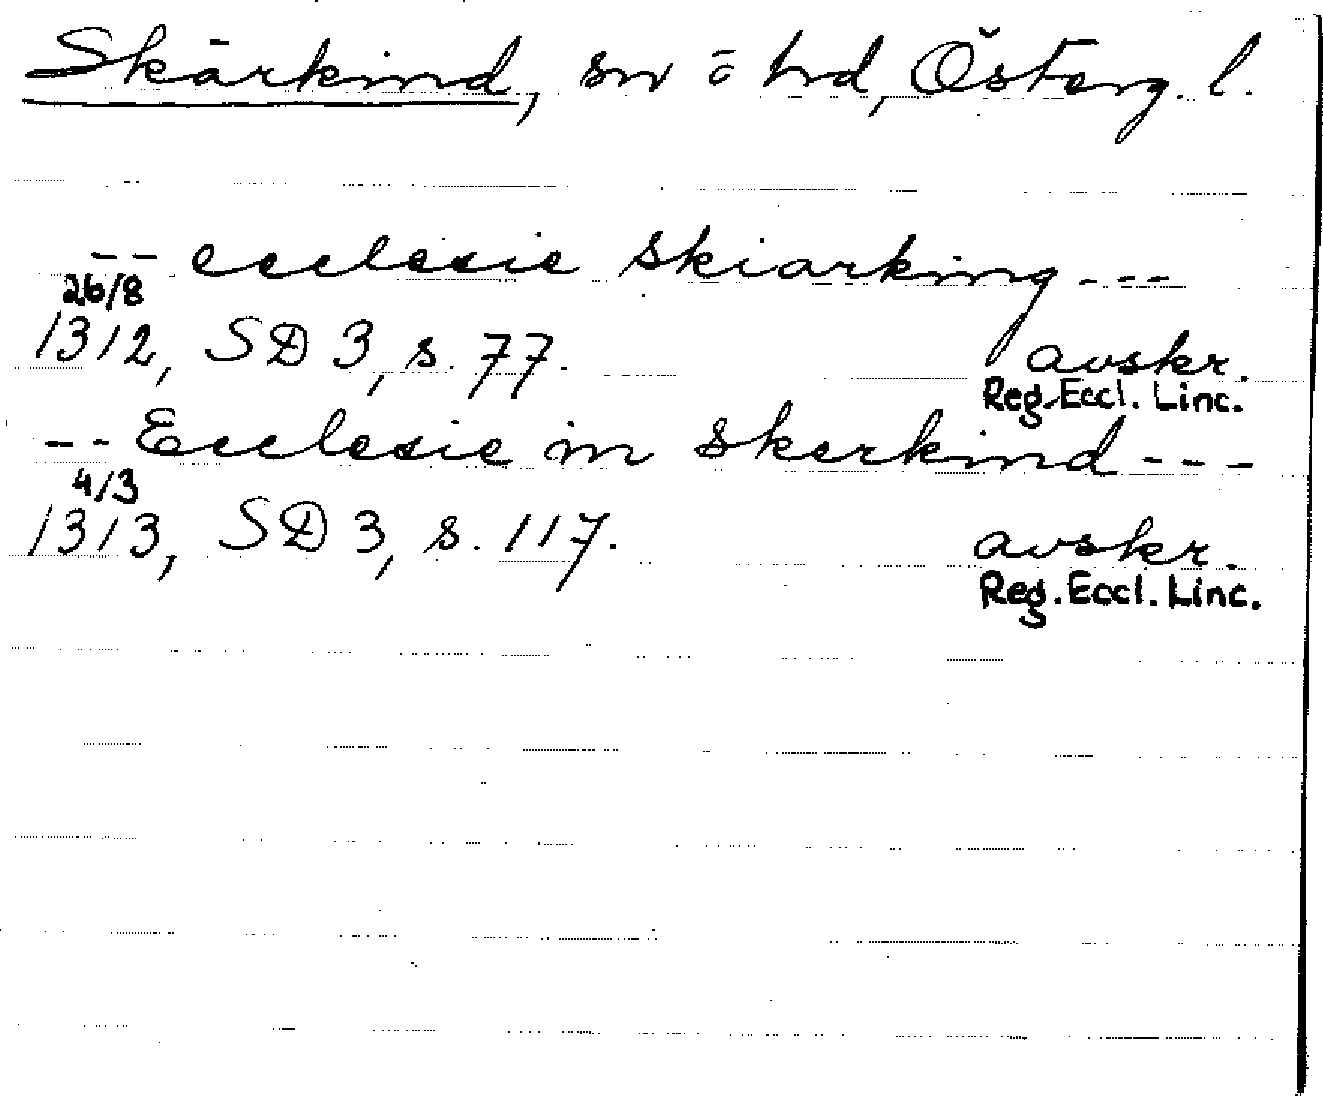 Skärkind, sn o hrd, Österg. l.
-- ecclesie skiarking ---
26/8
1312, SD 3, s. 77. avskr.
Reg. Eccl. Linc.
-- Ecclesie in skerkind ---
4/3
1313, SD 3, s. 117. avskr.
Reg. Eccl. Linc.